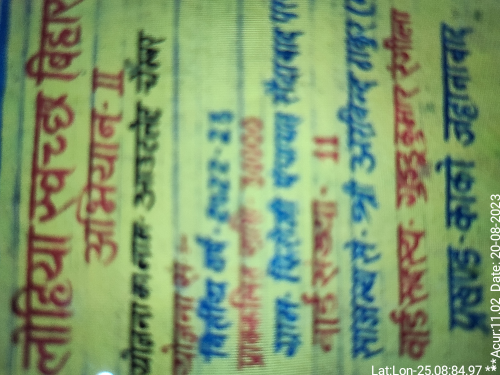 लोहिया स्वच्छ बिहार
अभियान-II
योजना का नाम- आउटलेट चेम्बर
योजना सं०-
वित्तीय वर्ष- 2022-23
प्राक्कलित राशि 30000
ग्राम- पंचायत
वार्ड संख्या- 11
माध्यम से- श्री अरविन्द ठाकुर
वार्ड सदस्य- कुमार रंगीला
प्रखण्ड-काको जहानाबाद
Lat:Lon-25.08:84.97 **
**Acur:11.02 Date: 20-08-2023